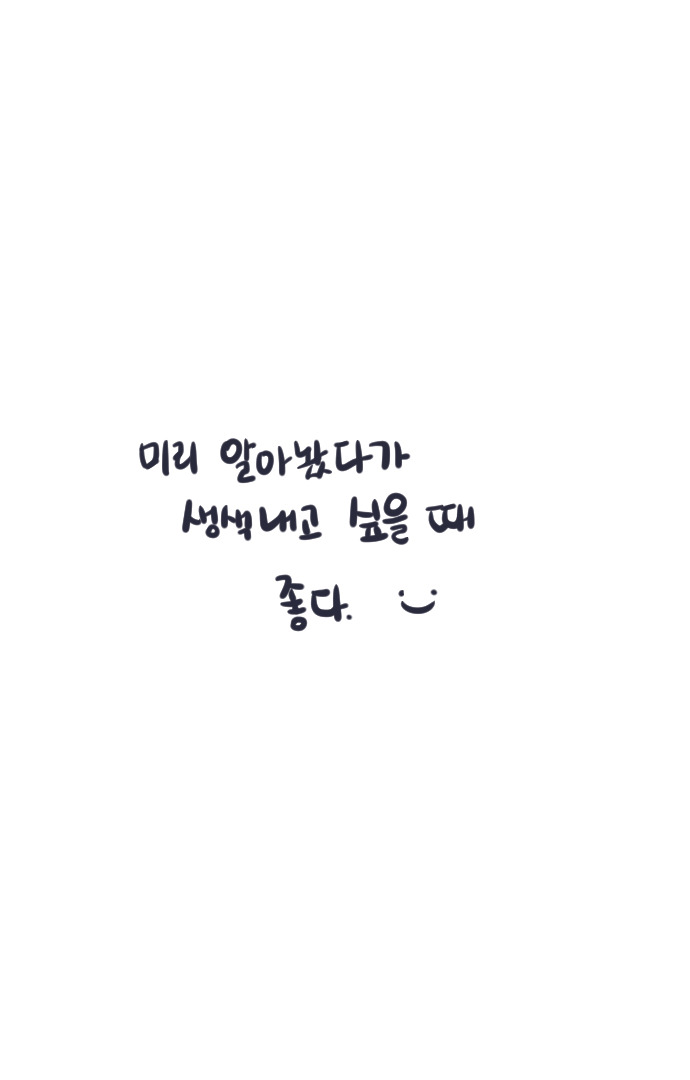 미리 알아놨다가
생색내고 싶을 때
좋다. :)